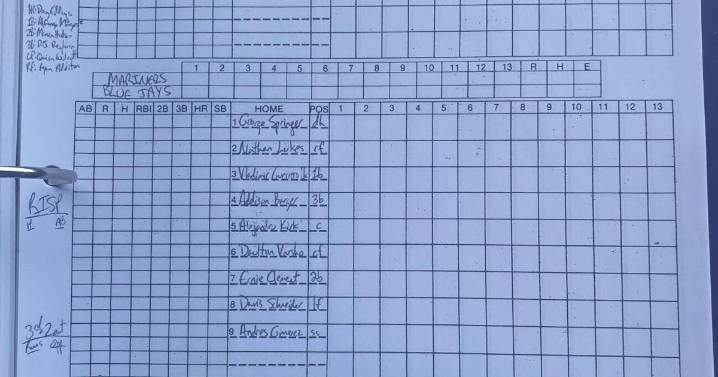 1 2 3 4 5 6 7 8 9 10 11 12 13 R H E
MARINERS
BLUE JAYS
AB R H RBI 2B 3B HR SB HOME POS 1 2 3 4 5 6 7 8 9 10 11 12 13
1 George Springer dh
2 Nathan Lukes rf
3 Vladimir Guerrero Jr 1b
4 Addison Barger 3b
5 Alejandro Kirk c
6 Daulton Varsho cf
7 Ernie Clement 2b
8 Davis Schneider lf
9 Andres Gimenez ss
RISP
H AB